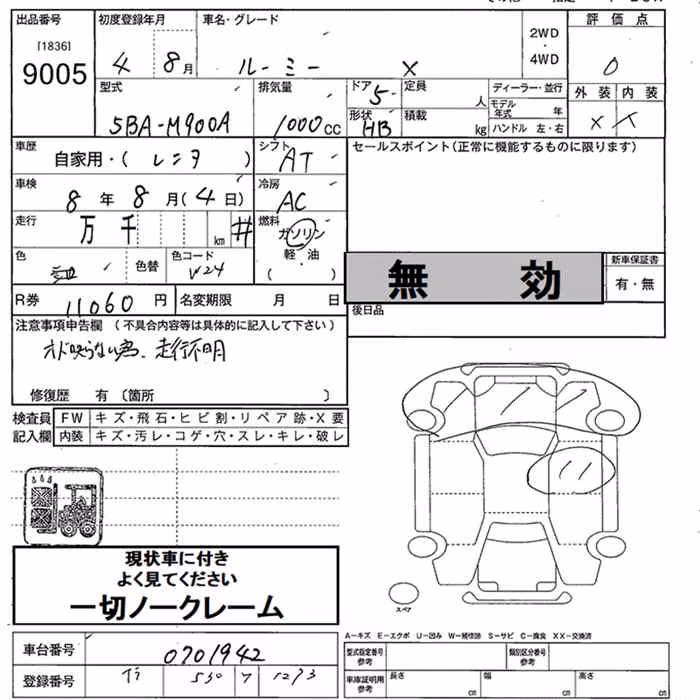 出品番号 初度登録年月 車名・グレード 2WD・4WD 評価点
[1836]
9005 4 8月 ルーミー X 0
型式 排気量 ドア 5 定員 人 ディーラー・並行 外装 内装
5BA-M900A 1000cc 形状 HB 積載 kg モデル年式 年 X X
ハンドル 左・右
車歴 シフト セールスポイント(正常に機能するものに限ります)
自家用・( レンタ ) AT
車検 冷房
8年 8月( 4日) AC
走行 燃料
万 千 km # ガソリン
色 色替 色コード 軽・油 無 効 新車保証書
W24 ( ) 有・無
R券 11060円 名変期限 月 日 後日品
注意事項申告欄 (不具合内容等は具体的に記入して下さい)
オド映らない為、走行不明
修復歴 有 〔箇所 〕
検査員 FW キズ・飛石・ヒビ割・リペア跡・X要
記入欄 内装 キズ・汚レ・コゲ・穴・スレ・キレ・破レ
現状車に付き
よく見てください
一切ノークレーム
スペア
A-キズ E-エクボ U-凹み W-補修跡 S-サビ C-腐食 XX-交換済
車台番号 0701942 型式指定番号 参考 類別区分番号 参考
登録番号 530 ワ 1273 車庫証明用 参考 長さ cm 幅 cm 高さ cm